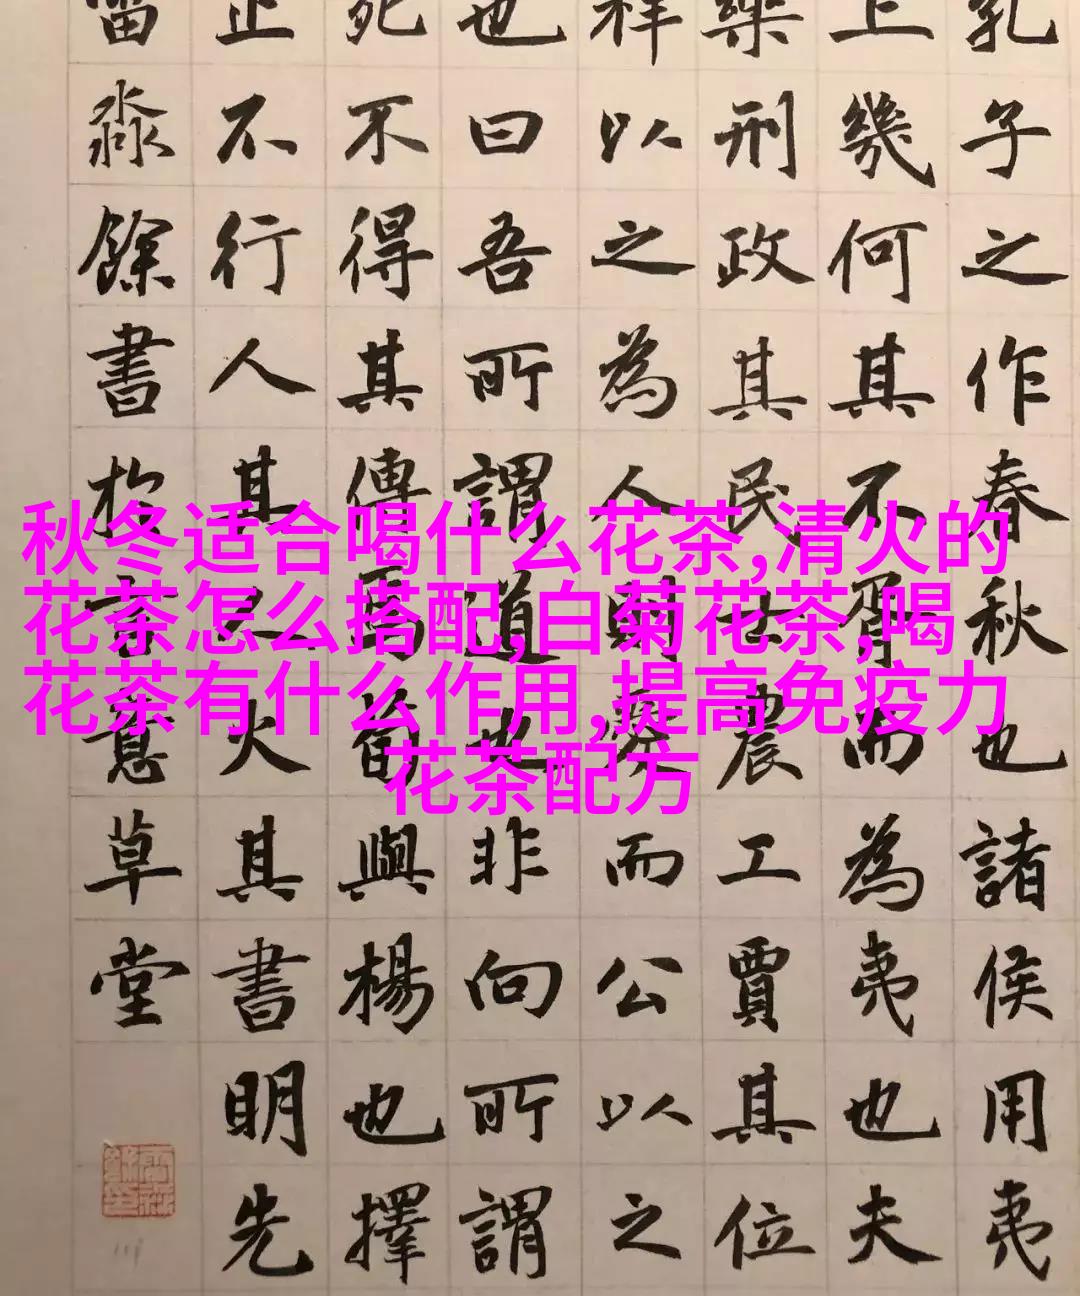 孔子之作春秋也諸侯用夷
上幾何其不胥而為夷也夫
樂刑政其民士農工賈其位
祥以之為人則愛而公以之
也曰吾所謂道也非向所謂
死不得其傳焉荀與楊也擇
止不行人其人火其書明先
淼餘書於意草堂
秋冬适合喝什么花茶,清火的
花茶怎么搭配,白菊花茶,喝
花茶有什么作用,提高免疫力
花茶配方